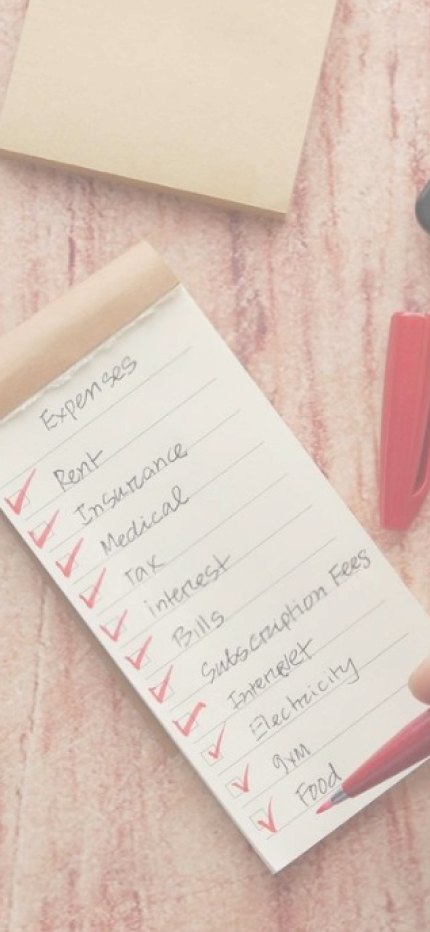 Expenses
Rent
Insurance
Medical
Tax
interest
Bills
Subscription Fees
Internet
Electricity
gym
Food